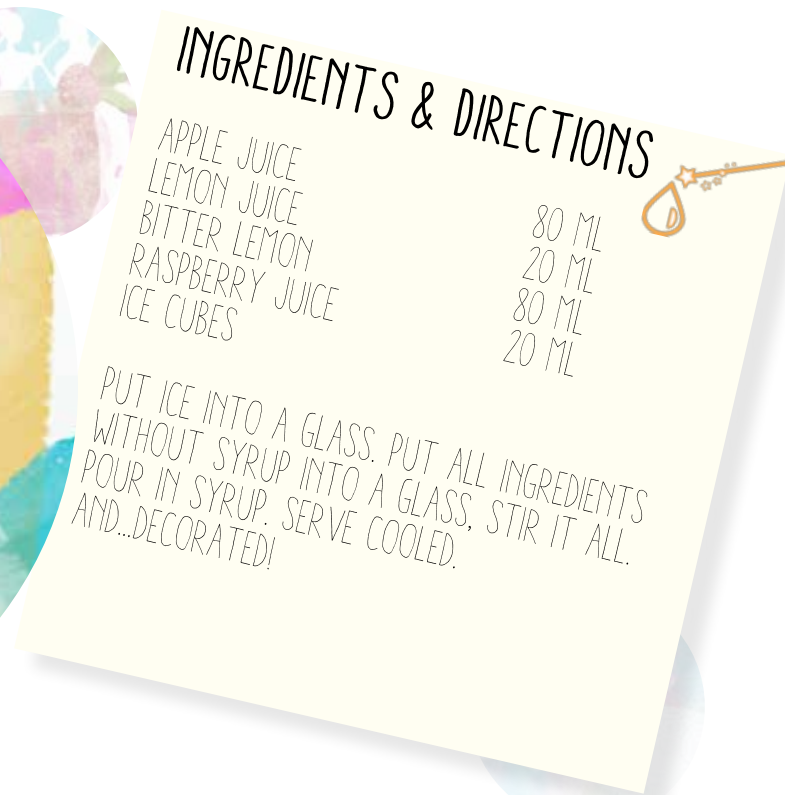 INGREDIENTS & DIRECTIONS
APPLE JUICE 80 ML
LEMON JUICE 20 ML
BITTER LEMON 80 ML
RASPBERRY JUICE 20 ML
ICE CUBES
PUT ICE INTO A GLASS. PUT ALL INGREDIENTS
WITHOUT SYRUP INTO A GLASS, STIR IT ALL.
POUR IN SYRUP. SERVE COOLED.
AND...DECORATED!